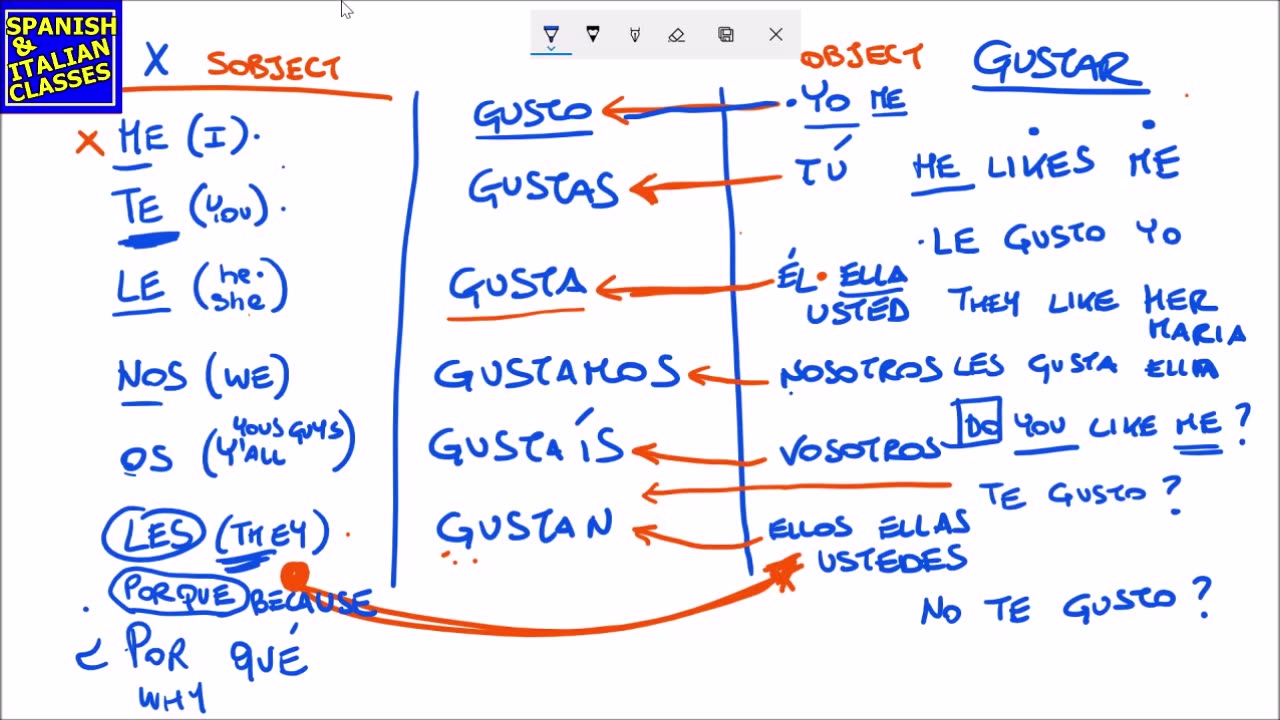 SPANISH
&
ITALIAN
CLASSES
X SOBJECT
OBJECT GUSTAR
X ME (I).
GUSTO
.YO ME
TE (YOU).
GUSTAS
TÚ
HE LIKES ME
LE (he. she)
GUSTA
ÉL • ELLA
USTED
.LE GUSTO YO
THEY LIKE HER
MARIA
NOS (WE)
GUSTAMOS
NOSOTROS
LES GUSTA ELLA
OS (YOUS GUYS Y'ALL)
GUSTAÍS
VOSOTROS
DO YOU LIKE ME?
TE GUSTO?
LES (THEY).
GUSTAN
ELLOS ELLAS
USTEDES
. PORQUE BECAUSE
NO TE GUSTO?
¿ POR QUÉ
WHY